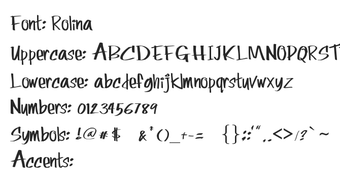 Font: Rolina
Uppercase: ABCDEFGHIJKLMNOPQRST
Lowercase: abcdefghijklmnopqrstuvwxyz
Numbers: 0123456789
Symbols: !@#$ &*()_+-= {}:;'",.<>/?`~
Accents: